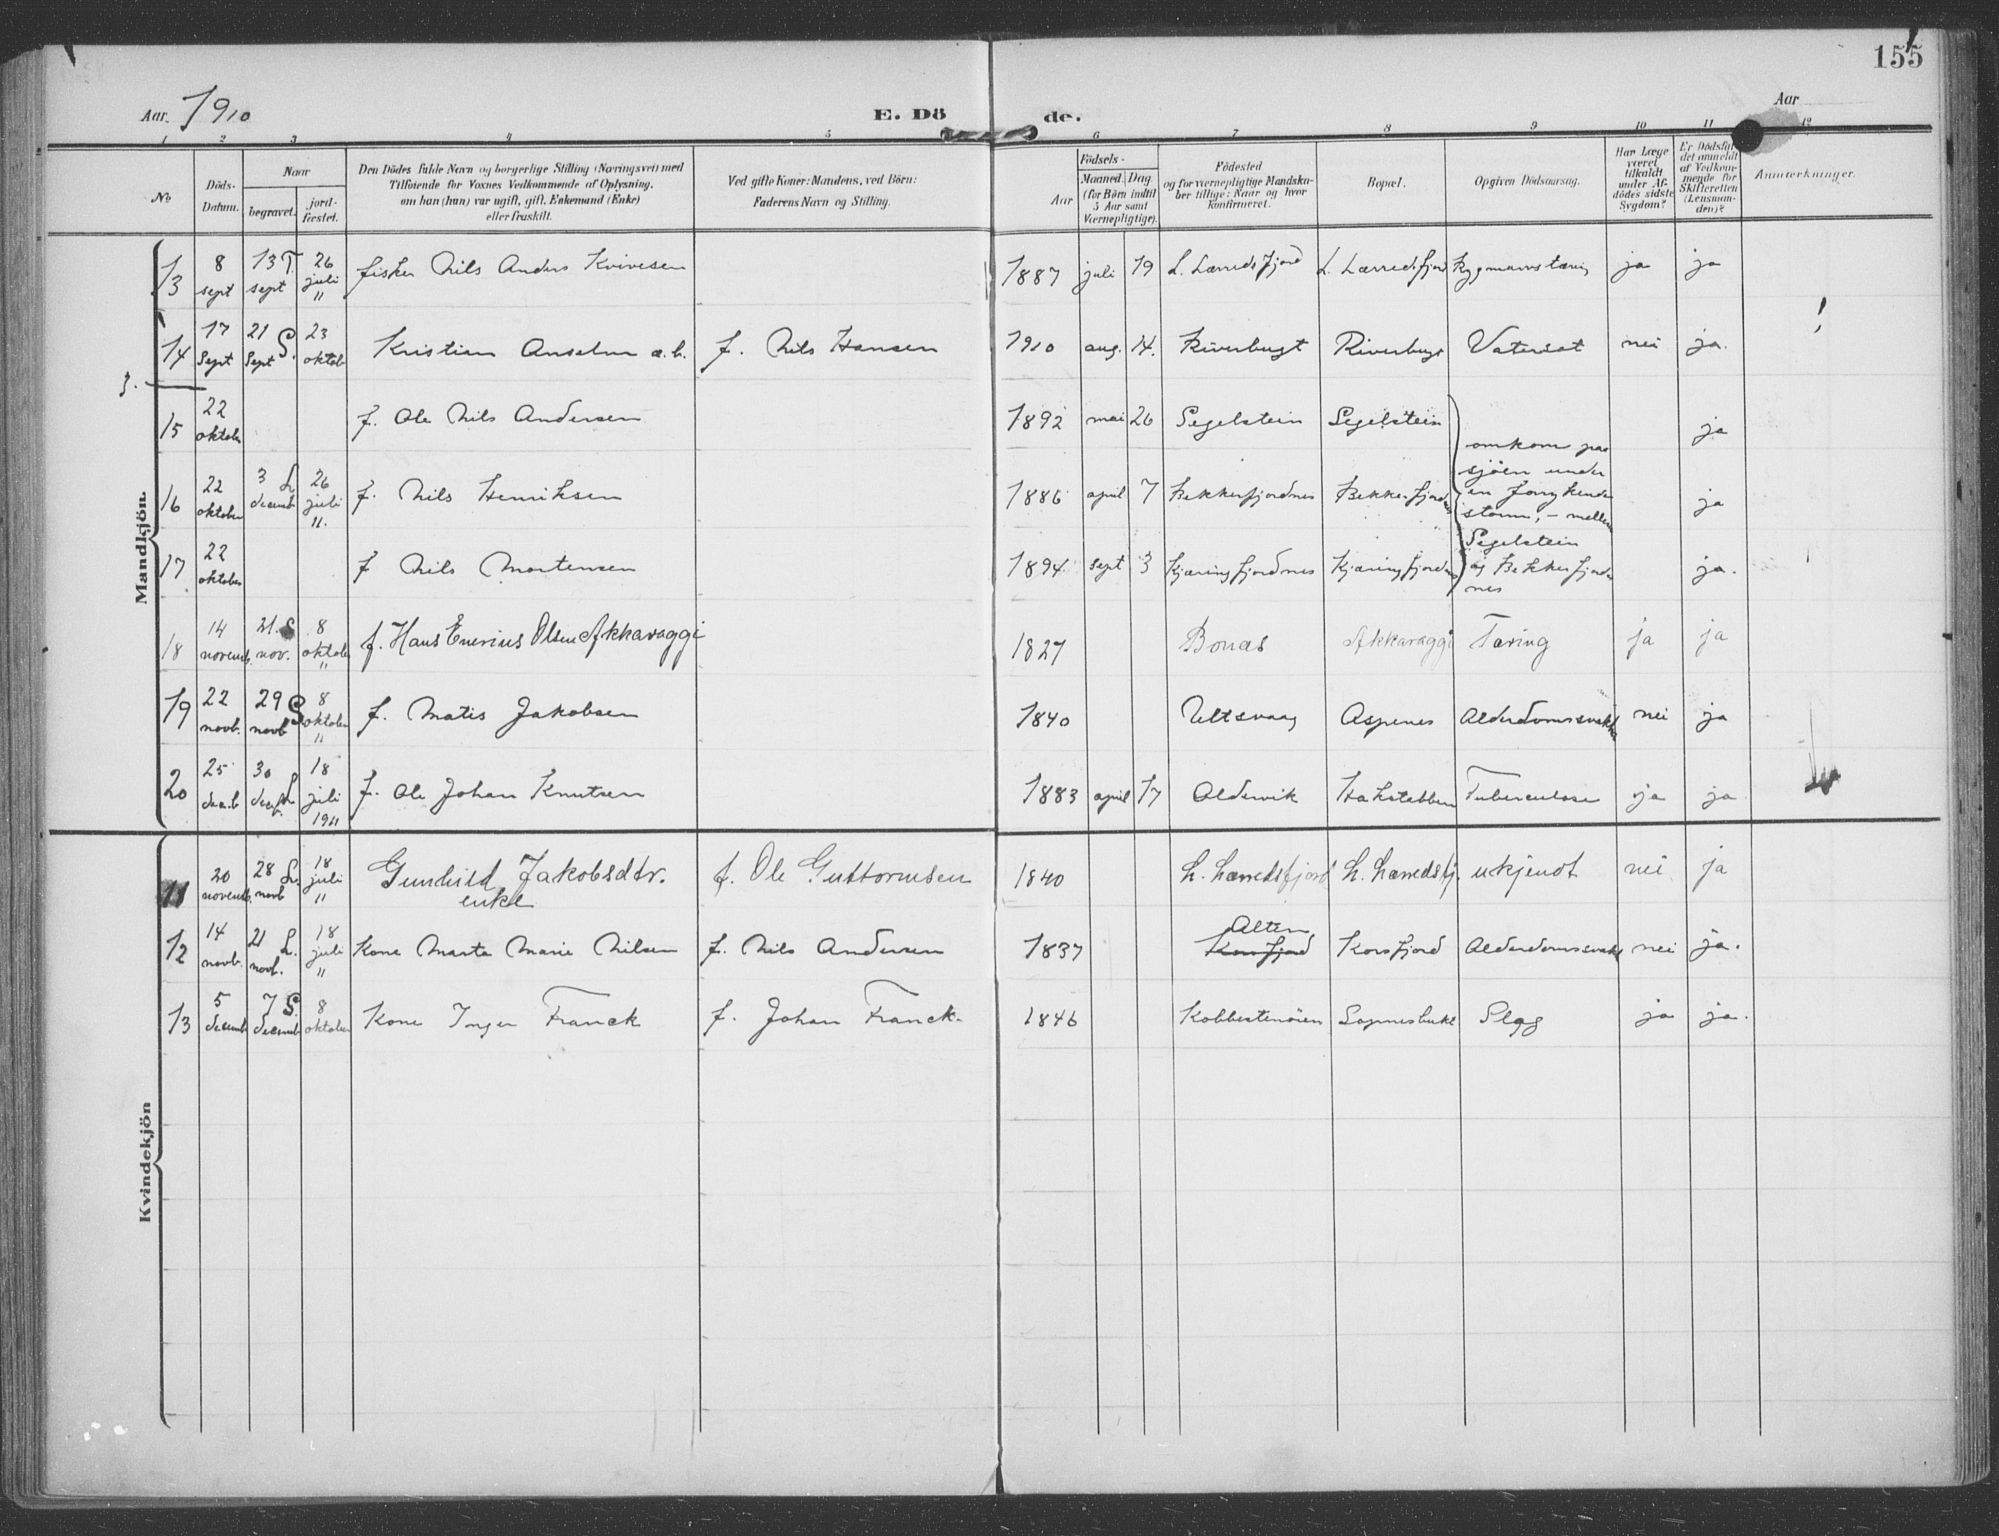 155
Aar 1910
E. Döde.
Aar
1 2 3 4 5 6 7 8 9 10 11 12
No
Döds-Datum.
Naar
begravet.
jord-fæstet.
Den Dödes fulde Navn og borgerlige Stilling (Næringsvei) med
Tilföiende for Voxnes Vedkommende af Oplysning,
om han (hun) var ugift, gift, Enkemand (Enke)
eller fraskilt.
Ved gifte Koner: Mandens, ved Börn:
Faderens Navn og Stilling.
Födsels-
Aar
Maaned. Dag
(for Börn indtil
5 Aar samt
Værnepligtige).
Födested
og for værnepligtige Mandska-
ber tillige: Naar og hvor
konfirmeret.
Bopæl.
Opgiven Dödsaarsag.
Har Læge
været
tilkaldt
under Af-
dödes sidste
Sygdom?
Er Dödsfal-
det anmeldt
af Vedkom-
mende for
Skifteretten
(Lensman-
den)?
Anmerkninger.
Mandkjön.
13 8 sept 13 T. sept 26 juli 11 fisker Nils Anders Kvivesen 1887 juli 19 L. Lærredsfjord L. Lærredsfjord ja ja
14 17 Sept 21 Sept S. 23 oktob Kristian Anselm f. Nils Hansen 1910 aug. 14. Riverbugt Riverbugt nei ja.
15 22 oktober f. Ole Nils Andersen 1892 mai 26 Segelstein Segelstein ja
16 22 oktober 3 L. decemb 26 juli 11. f. Nils Henriksen 1886 april 7 Bekkerfjordnes Bekkerfjordnes ja
17 22 oktober f Nils Mortensen 1894 sept 3 Kjæringfjordnes Kjæringfjordnes ja.
omkom paa
sjöen under
en forrykende
storm, - mellem
Segelstein
og Bekkerfjord
nes
18 14 novemb. 21. S nov. 8 oktober 11 f. Hans Enerius Olsen Akkaraggi 1827 Bonas Akkaraggi Tæring ja ja
19 22 novb. 29 S novb 8 oktober 11 f. Matis Jakobsen 1840 Ultsvaag Aspenes Alderdomssvakhe nei ja
20 25 decb 30 L. 18 juli 1911 f. Ole Johan Knutsen 1883 april 17 Aldervik Hakstabben Tuberculose ja ja
Kvindekjön
11 20 novemb. 28 L. novb 18 juli 11 Gunhild Jakobsdtr. enke f. Ole Guttormsen 1840 L. Lærredsfjord L. Lærredsfj. ukjendt nei ja
12 14 novb. 21 L. novb. 18 juli 11 Kone Marta Marie Nilsen f. Nils Andersen 1837 Alten Korsfjord Korsfjord Alderdomssvakh nei ja.
13 5 decemb 7 S. decemb 8 oktober Kone Inger Franck f. Johan Franck. 1846 Kobbestenöien Slag ja ja.